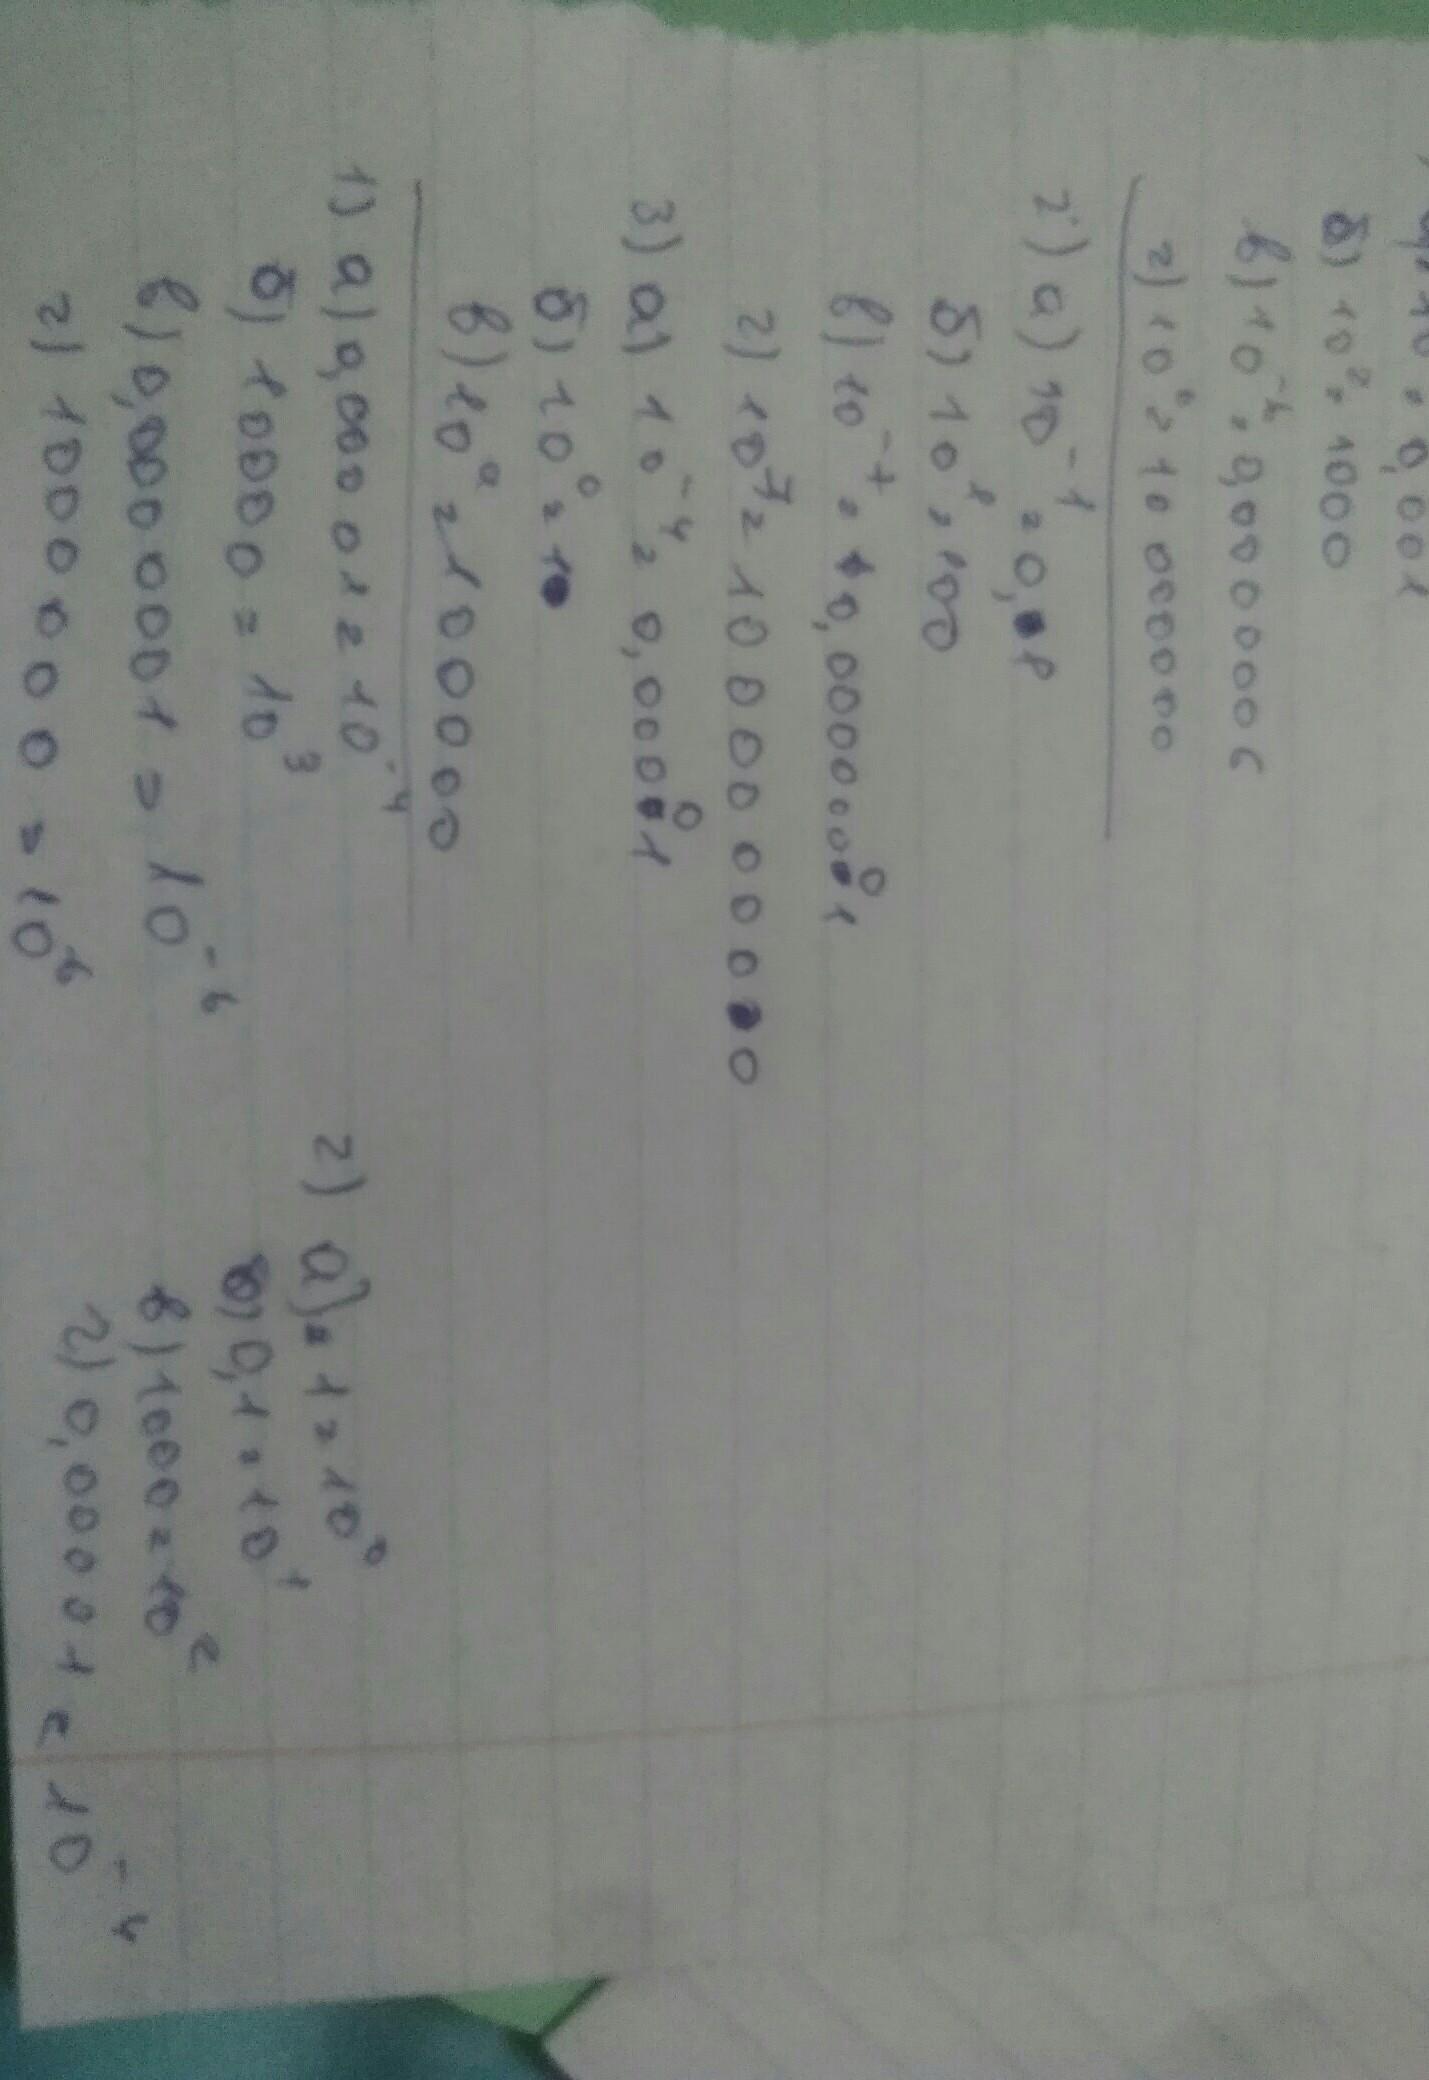 б) 10² = 1000
в) 10⁻⁶ = 0,000000 6
г) 10⁶ = 10 000000
2) а) 10⁻¹ = 0,1
б) 10¹ = 100
в) 10⁻⁷ = 0,00000001
г) 10⁷ = 10 000 00000
3) а) 10⁻⁴ = 0,00001
б) 10⁰ = 10
в) 10⁴ = 10000
1) а) 0,0001 = 10⁻⁴
б) 10000 = 10³
в) 0,0000001 = 10⁻⁶
г) 1000000 = 10⁶
2) а) 1 = 10⁰
б) 0,1 = 10¹
в) 1000 = 10²
г) 0,00001 = 10⁻⁴